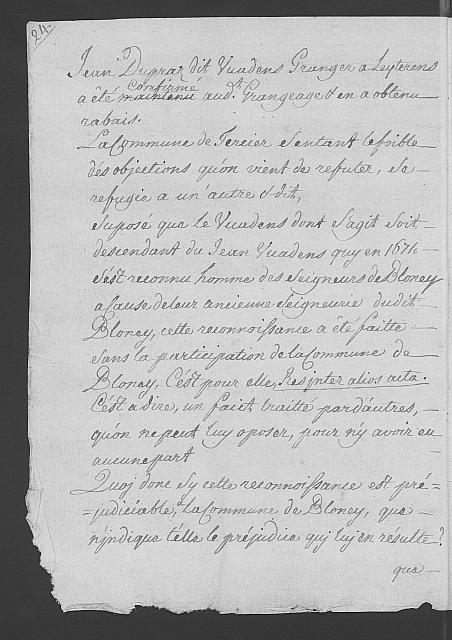 24.
Jean Dupraz dit Vuadens Granger a Leyterens
confirmé
a été maintenu aud.t Grangeage & en a obtenu
rabais.
La Commune de Tercier sentant le foible
dés objections qu'on vient de refuter, se
refugie a un'autre & dit,
Suposé que le Vuadens dont s'agit soit
descendant du Jean Vuadens quy en 1671
s'est reconnu homme des Seigneurs de Bloney
a Cause de leur ancienne Seigneurie dudit
Bloney, cette reconnoissance a été faitte
sans la participation de la Commune de
Bloney, C'est pour elle, Res inter alios acta.
C'est a dire, un fait traitté par d'autres,
qu'on ne peut luy oposer, pour n'y avoir eu
aucune part
Quoj donc sy cette reconnoissance est pré=
=judiciable, à la Commune de Bloney, que
n'jndique t'elle le préjudice quj luy en résulte?
que